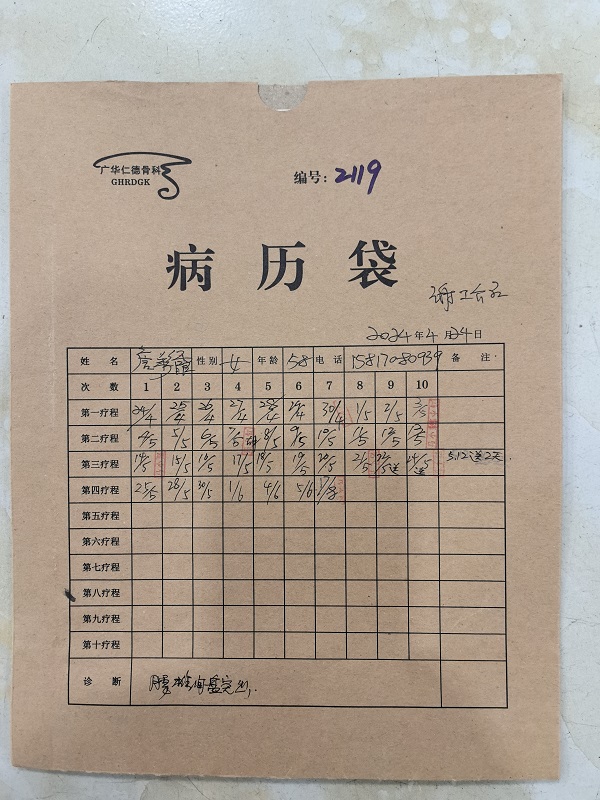 广华仁德骨科
GHRDGK
编号: 2119
病历袋
2024年4月24日
姓名 性别 女 年龄 58 电话 15817080939 备注
次数 1 2 3 4 5 6 7 8 9 10
第一疗程 24/4 25/4 26/4 27/4 28/4 29/4 30/4 1/5 2/5 3/5
第二疗程 4/5 5/5 6/5 7/5 8/5 9/5 10/5 11/5 12/5 13/5
第三疗程 14/5 15/5 16/5 17/5 18/5 19/5 20/5 21/5 送 24/5 送 5.12送2天
第四疗程 25/5 28/5 30/5 1/6 4/6 5/6
第五疗程
第六疗程
第七疗程
第八疗程
第九疗程
第十疗程
诊断 腰椎间盘突出